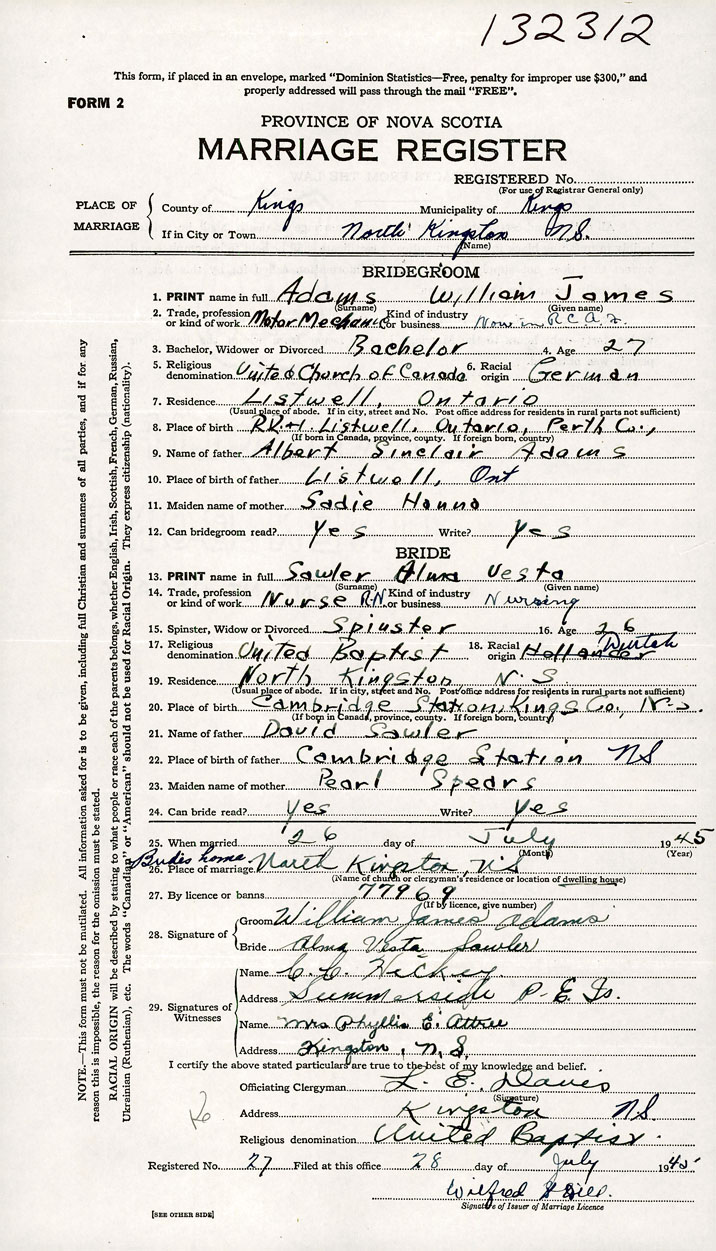 132312
This form, if placed in an envelope, marked "Dominion Statistics—Free, penalty for improper use $300," and
properly addressed will pass through the mail "FREE".
FORM 2
PROVINCE OF NOVA SCOTIA
MARRIAGE REGISTER
REGISTERED No.
(For use of Registrar General only)
PLACE OF MARRIAGE
County of Kings Municipality of Kings
If in City or Town North Kingston N.S.
(Name)
BRIDEGROOM
1. PRINT name in full Adams William James
(Surname) (Given name)
2. Trade, profession or kind of work Motor Mechanic Kind of industry or business Now in R.C.A.F.
3. Bachelor, Widower or Divorced Bachelor 4. Age 27
5. Religious denomination United Church of Canada 6. Racial origin German
7. Residence Listwell, Ontario
(Usual place of abode. If in city, street and No. Post office address for residents in rural parts not sufficient)
8. Place of birth Listwell, Ontario, Perth Co.,
(If born in Canada, province, county. If foreign born, country)
9. Name of father Albert Sinclair Adams
10. Place of birth of father Listwell, Ont
11. Maiden name of mother Sadie Hanna
12. Can bridegroom read? Yes Write? Yes
BRIDE
13. PRINT name in full Sawler Alma Vesta
(Surname) (Given name)
14. Trade, profession or kind of work Nurse R.N. Kind of industry or business Nursing
15. Spinster, Widow or Divorced Spinster 16. Age 26
17. Religious denomination United Baptist 18. Racial origin Hollander Dutch
19. Residence North Kingston, N.S
(Usual place of abode. If in city, street and No. Post office address for residents in rural parts not sufficient)
20. Place of birth Cambridge Station, Kings Co., N.S.
(If born in Canada, province, county. If foreign born, country)
21. Name of father David Sawler
22. Place of birth of father Cambridge Station NS
23. Maiden name of mother Pearl Spears
24. Can bride read? Yes Write? Yes
25. When married 26 day of July 1945
(Month) (Year)
Brides home
26. Place of marriage North Kingston, N.S
(Name of church or clergyman's residence or location of dwelling house)
27. By licence or banns 77969
(If by licence, give number)
28. Signature of
Groom William James Adams
Bride Alma Vesta Sawler
29. Signatures of Witnesses
Name C. C. Hickey
Address Summerside P.E. Is.
Name Mrs Phyllis E. Attree
Address Kingston, N.S.
I certify the above stated particulars are true to the best of my knowledge and belief.
Officiating Clergyman L. E. Daves
(Signature)
Address Kingston NS
Religious denomination United Baptist.
Registered No. 27 Filed at this office 28 day of July 1945
Wilfred
Signature of Issuer of Marriage Licence
[SEE OTHER SIDE]
NOTE.—This form must not be mutilated. All information asked for is to be given, including full Christian and surnames of all parties, and if for any
reason this is impossible, the reason for the omission must be stated.
RACIAL ORIGIN will be described by stating to what people or race each of the parents belongs, whether English, Irish, Scottish, French, German, Russian,
Ukrainian (Ruthenian), etc. The words "Canadian" or "American" should not be used for Racial Origin. They express citizenship (nationality).